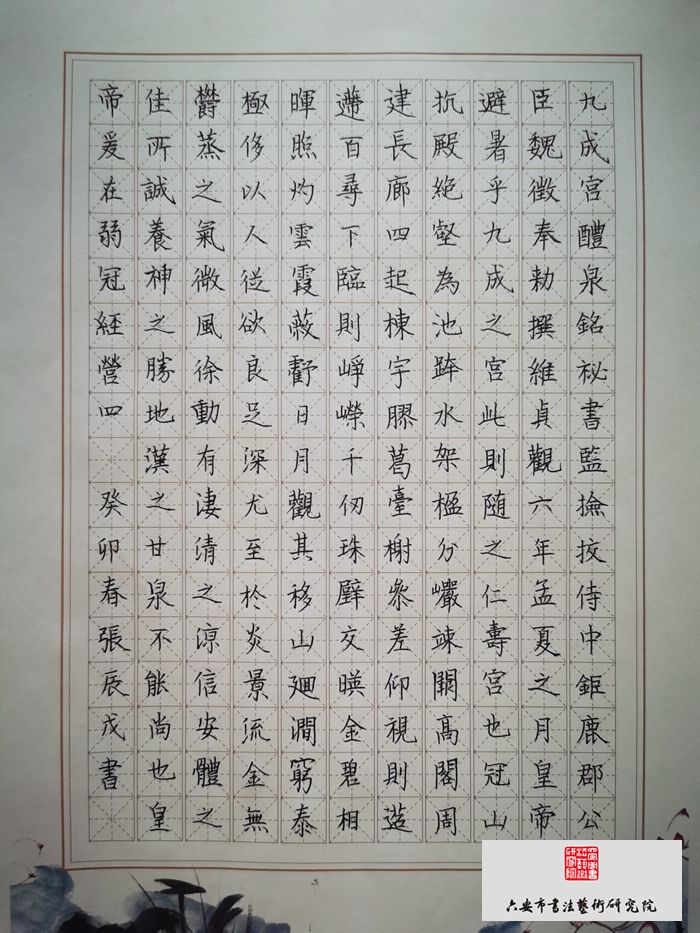 九成宮醴泉銘祕書監撿挍侍中鉅鹿郡公
臣魏徵奉勅撰維貞觀六年孟夏之月皇帝
避暑乎九成之宮此則随之仁壽宮也冠山
抗殿絶壑為池跨水架楹分巗竦闕高閣周
建長廊四起棟宇膠葛臺榭叅差仰視則迢
遰百尋下臨則崢嶸千仞珠璧交暎金碧相
暉照灼雲霞蔽虧日月觀其移山廻澗窮泰
極侈以人従欲良足深尤至於炎景流金無
欝蒸之氣微風徐動有淒清之涼信安體之
佳所誠養神之勝地漢之甘泉不能尚也皇
帝爰在弱冠經營四 癸卯春張辰戌書
六安市書法藝術研究院